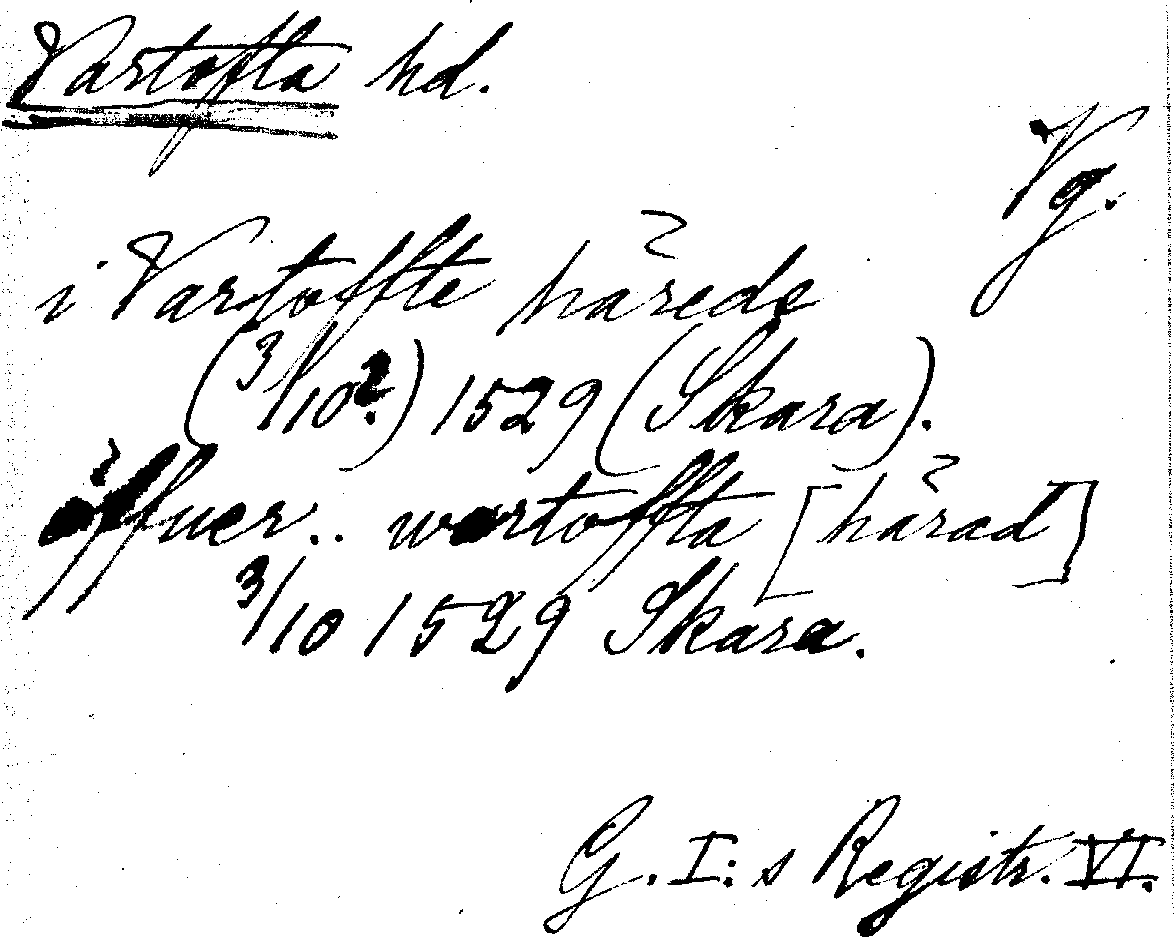 Vartofta hd.
Vg.
i Vartoffte härede
(3/10?) 1529 (Skara).
öffuer.. wartoffta [härad]
3/10 1529 Skara.
G. I:s Registr. VI.